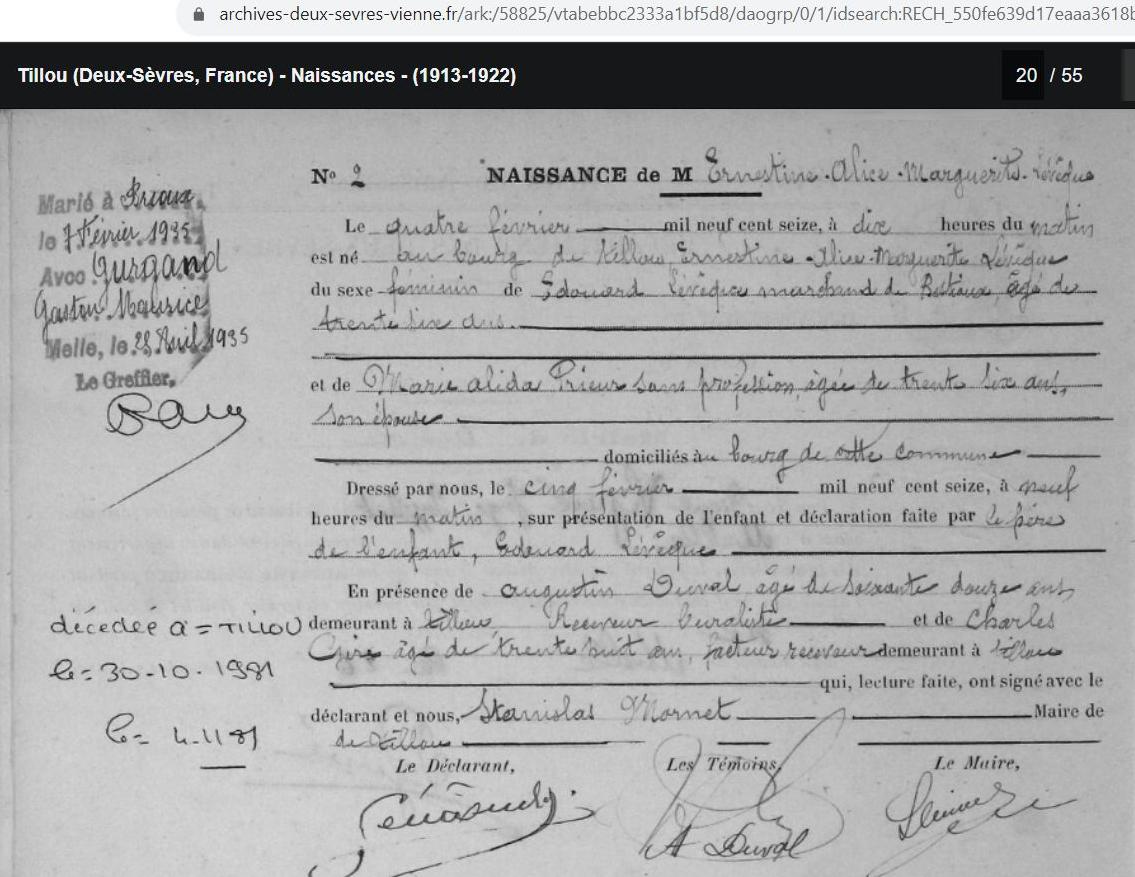 archives-deux-sevres-vienne.fr/ark:/58825/vtabebbc2333a1bf5d8/daogrp/0/1/idsearch:RECH_550fe639d17eaaa3618b
Tillou (Deux-Sèvres, France) - Naissances - (1913-1922)
20 / 55
Nº 2 NAISSANCE de M Ernestine-Alice-Marguerite-Lévêque
Le quatre février mil neuf cent seize, à dix heures du matin
est né au bourg de Tillou, Ernestine-Alice-Marguerite Lévêque
du sexe féminin de Edouard Lévêque marchand de Bestiaux, âgé de
trente six ans.
et de Marie alida Prieur sans profession, âgée de trente six ans,
son épouse
domiciliés au bourg de cette commune
Dressé par nous, le cinq février mil neuf cent seize, à neuf
heures du matin, sur présentation de l'enfant et déclaration faite par le père
de l'enfant, Edouard Lévêque
En présence de augustin Duval âgé de soixante douze ans,
demeurant à Tillou, Receveur buraliste et de Charles
âgé de trente huit ans, facteur receveur demeurant à Tillou
qui, lecture faite, ont signé avec le
déclarant et nous, Stanislas Mornet Maire de
de Tillou
Le Déclarant, Les Témoins, Le Maire,
A Duval
Marié à
le 7 Février 1935
Avec Gurgand
Gaston Maurice
Melle, le 28 Avril 1935
Le Greffier,
décédée à = TILLOU
le = 30-10-1981
le = 4.11 81